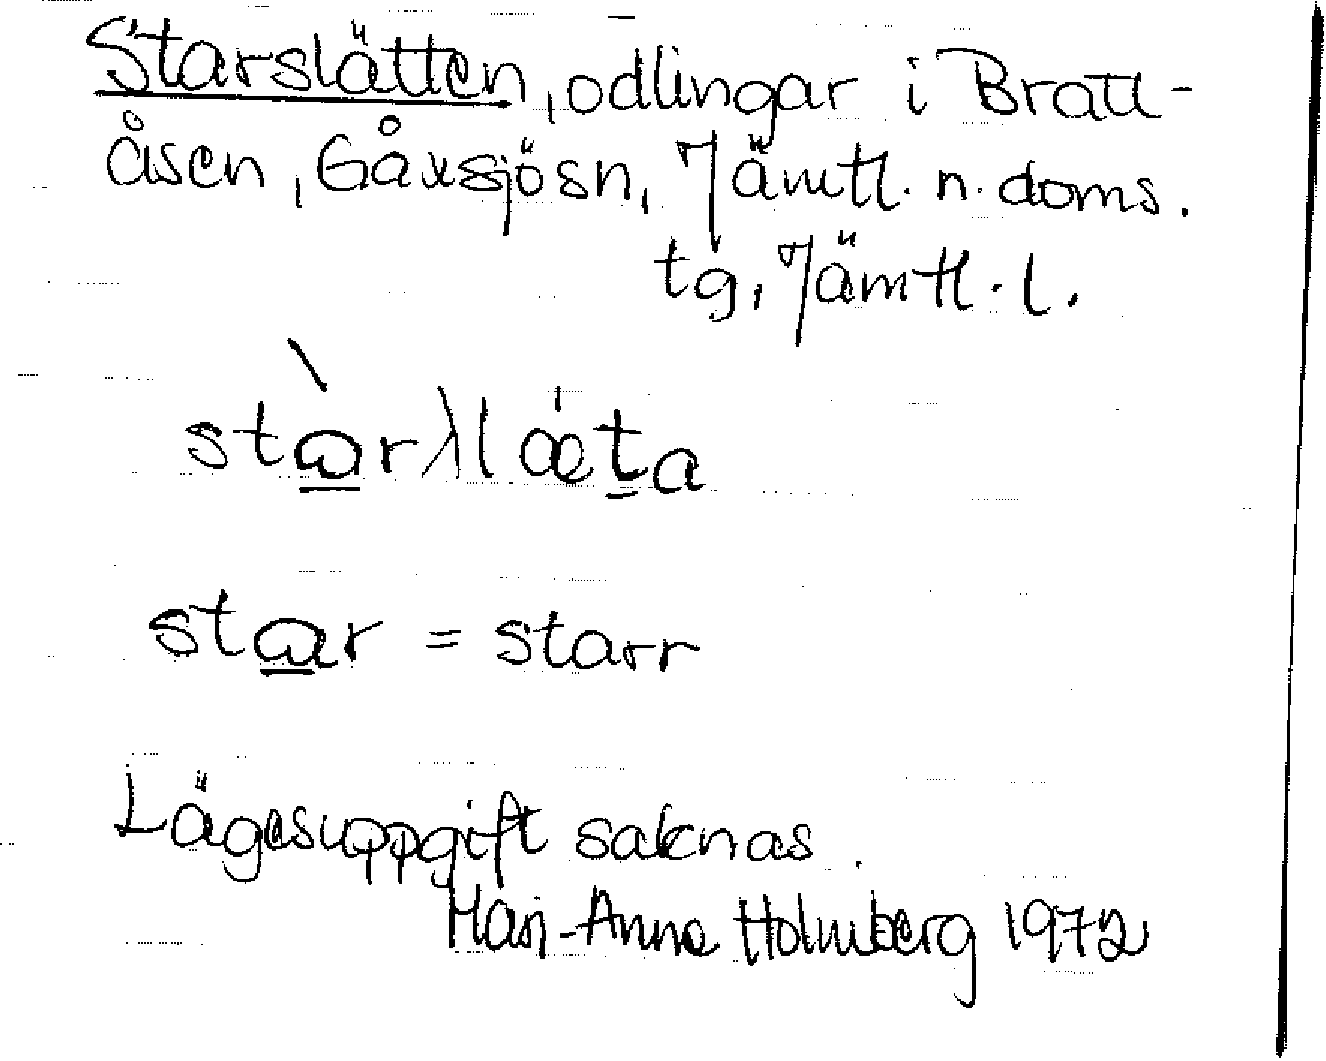 Starslätten, odlingar i Bratt-
åsen, Gåxsjösn, Jämtl. n. doms.
tg, Jämtl. l.
stàrλlǽta
star = starr
Lägesuppgift saknas.
Mari-Anne Holmberg 1972